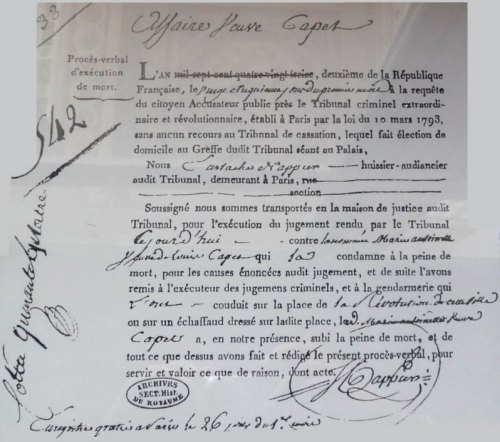 33
Affaire Veuve Capet
Procès-verbal
d'exécution
de mort.
542
L'AN mil sept cent quatre vingt treize, deuxième de la République
Française, le du premier mois à la requête
du citoyen Accusateur public près le Tribunal criminel extraordi-
naire et révolutionnaire, établi à Paris par la loi du 10 mars 1793,
sans aucun recours au Tribunal de cassation, lequel fait élection de
domicile au Greffe dudit Tribunal séant au Palais,
Nous Eustache Nappier huissier-audiancier
audit Tribunal, demeurant à Paris, rue
section
Soussigné nous sommes transportés en la maison de justice audit
Tribunal, pour l'exécution du jugement rendu par le Tribunal
cejourd'hui contre la nommée Marie antoinette
Veuve Louis Capet qui la condamne à la peine de
mort, pour les causes énoncées audit jugement, et de suite l'avons
remis à l'exécuteur des jugemens criminels, et à la gendarmerie qui
l'ont conduit sur la place de la Révolution de cette ville
où sur un échaffaud dressé sur ladite place, lad. Marie antoinette Veuve
Capet a, en notre présence, subi la peine de mort, et de
tout ce que dessus avons fait et rédigé le présent procès-verbal, pour
servir et valoir ce que de raison, dont acte.
Nappier
ARCHIVES
SECT. HIST.
DU ROYAUME
Enregistré gratis a Paris le 26 jour du 1er mois